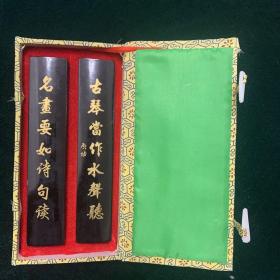 名畫要如诗句读
古琴當作水聲聽